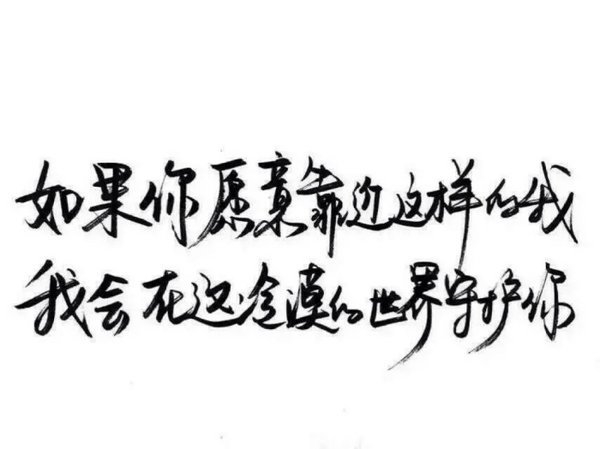 如果你愿意靠近这样的我
我会在这冷漠的世界守护你